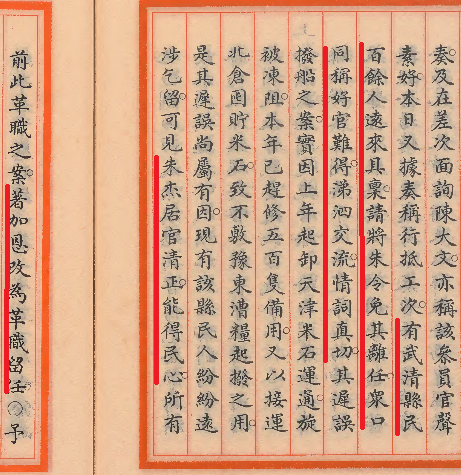 奏及在差次面詢陳大文亦稱該參員官聲
素好本日又據奏稱行抵工次有武清縣民
百餘人遠來具稟請將朱令免其離任衆口
同稱好官難得涕泗交流情詞真切其遲誤
撥船之案實因上年起卸天津米石運通旋
被凍阻本年已趕修五百隻備用又以接運
北倉囤貯米石致不敷豫東漕糧起撥之用
是其遲誤尚屬有因現有該縣民人紛紛遠
涉乞留可見朱杰居官清正能得民心所有
前此革職之案著加恩改為革職留任予